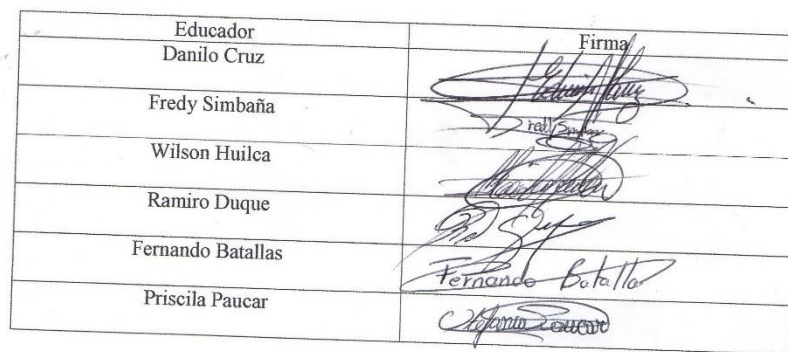 Educador Firma
Danilo Cruz
Fredy Simbaña
Wilson Huilca
Ramiro Duque
Fernando Batallas Fernando Batallas
Priscila Paucar Paucar